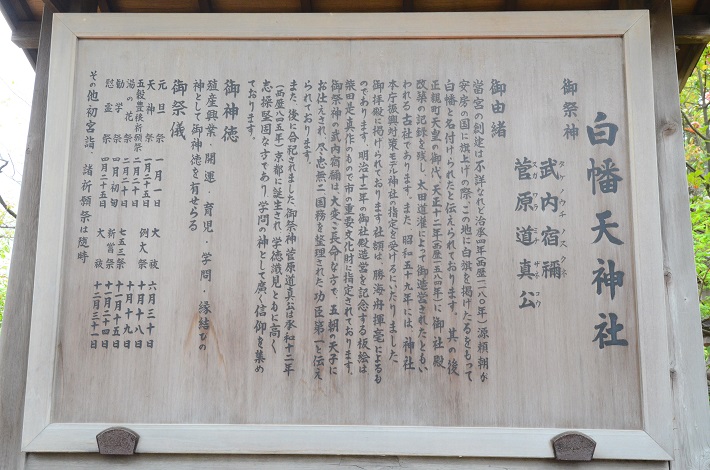 白幡天神社
御祭神
武内宿禰
タケノウチノスクネ
菅原道真公
スガワラミチザネコウ
御由緒
當宮の創建は不詳なれど治承四年(西歴一一八〇年)源頼朝が
安房の国に旗上げの際、この地に白旗を掲げたるをもって
白幡と名付けられたと伝えられております。其の後
正親町天皇の御代、天正十二年(西歴一五八四年)に御社殿
改築の記録を残し、太田道灌によって御造営されたともい
われる古社であります。また、昭和五十九年には、神社
本庁振興対策モデル神社の指定を受けるにいたりました
御拝殿に掲げられております社額は、勝海舟揮毫によるも
つであります。明治十三年の御社殿造営を記念する板絵は
柴田是真作のもので市の重要文化財に指定されております。
御祭神の武内宿禰は、大変ご長命な方で、五朝の天子に
お仕えされ、尽忠無二国務を整理された功臣第一と伝え
られております。
また、後に合祀されました御祭神菅原道真公は承和十二年
(西歴八四五年)京都に誕生され、学徳識見ともに高く
志操堅固な方であり学問の神として廣く信仰を集め
ております。
御神徳
殖産興業・開運・育児・学問・縁結びの
神として御神徳を有せらる
御祭儀
元旦祭 一月一日 大祓 六月三十日
天神祭 一月二十五日 例大祭 九月十八日
五穀豊穣祈願祭 二月二十日 七五三祭 十月十九日
湯の花祭 二月二十一日 七五三祭 十一月十五日
勧学祭 四月初旬 新嘗祭 十一月二十四日
慰霊祭 四月二十五日 大祓 十二月三十一日
その他初宮詣、諸祈願祭は随時